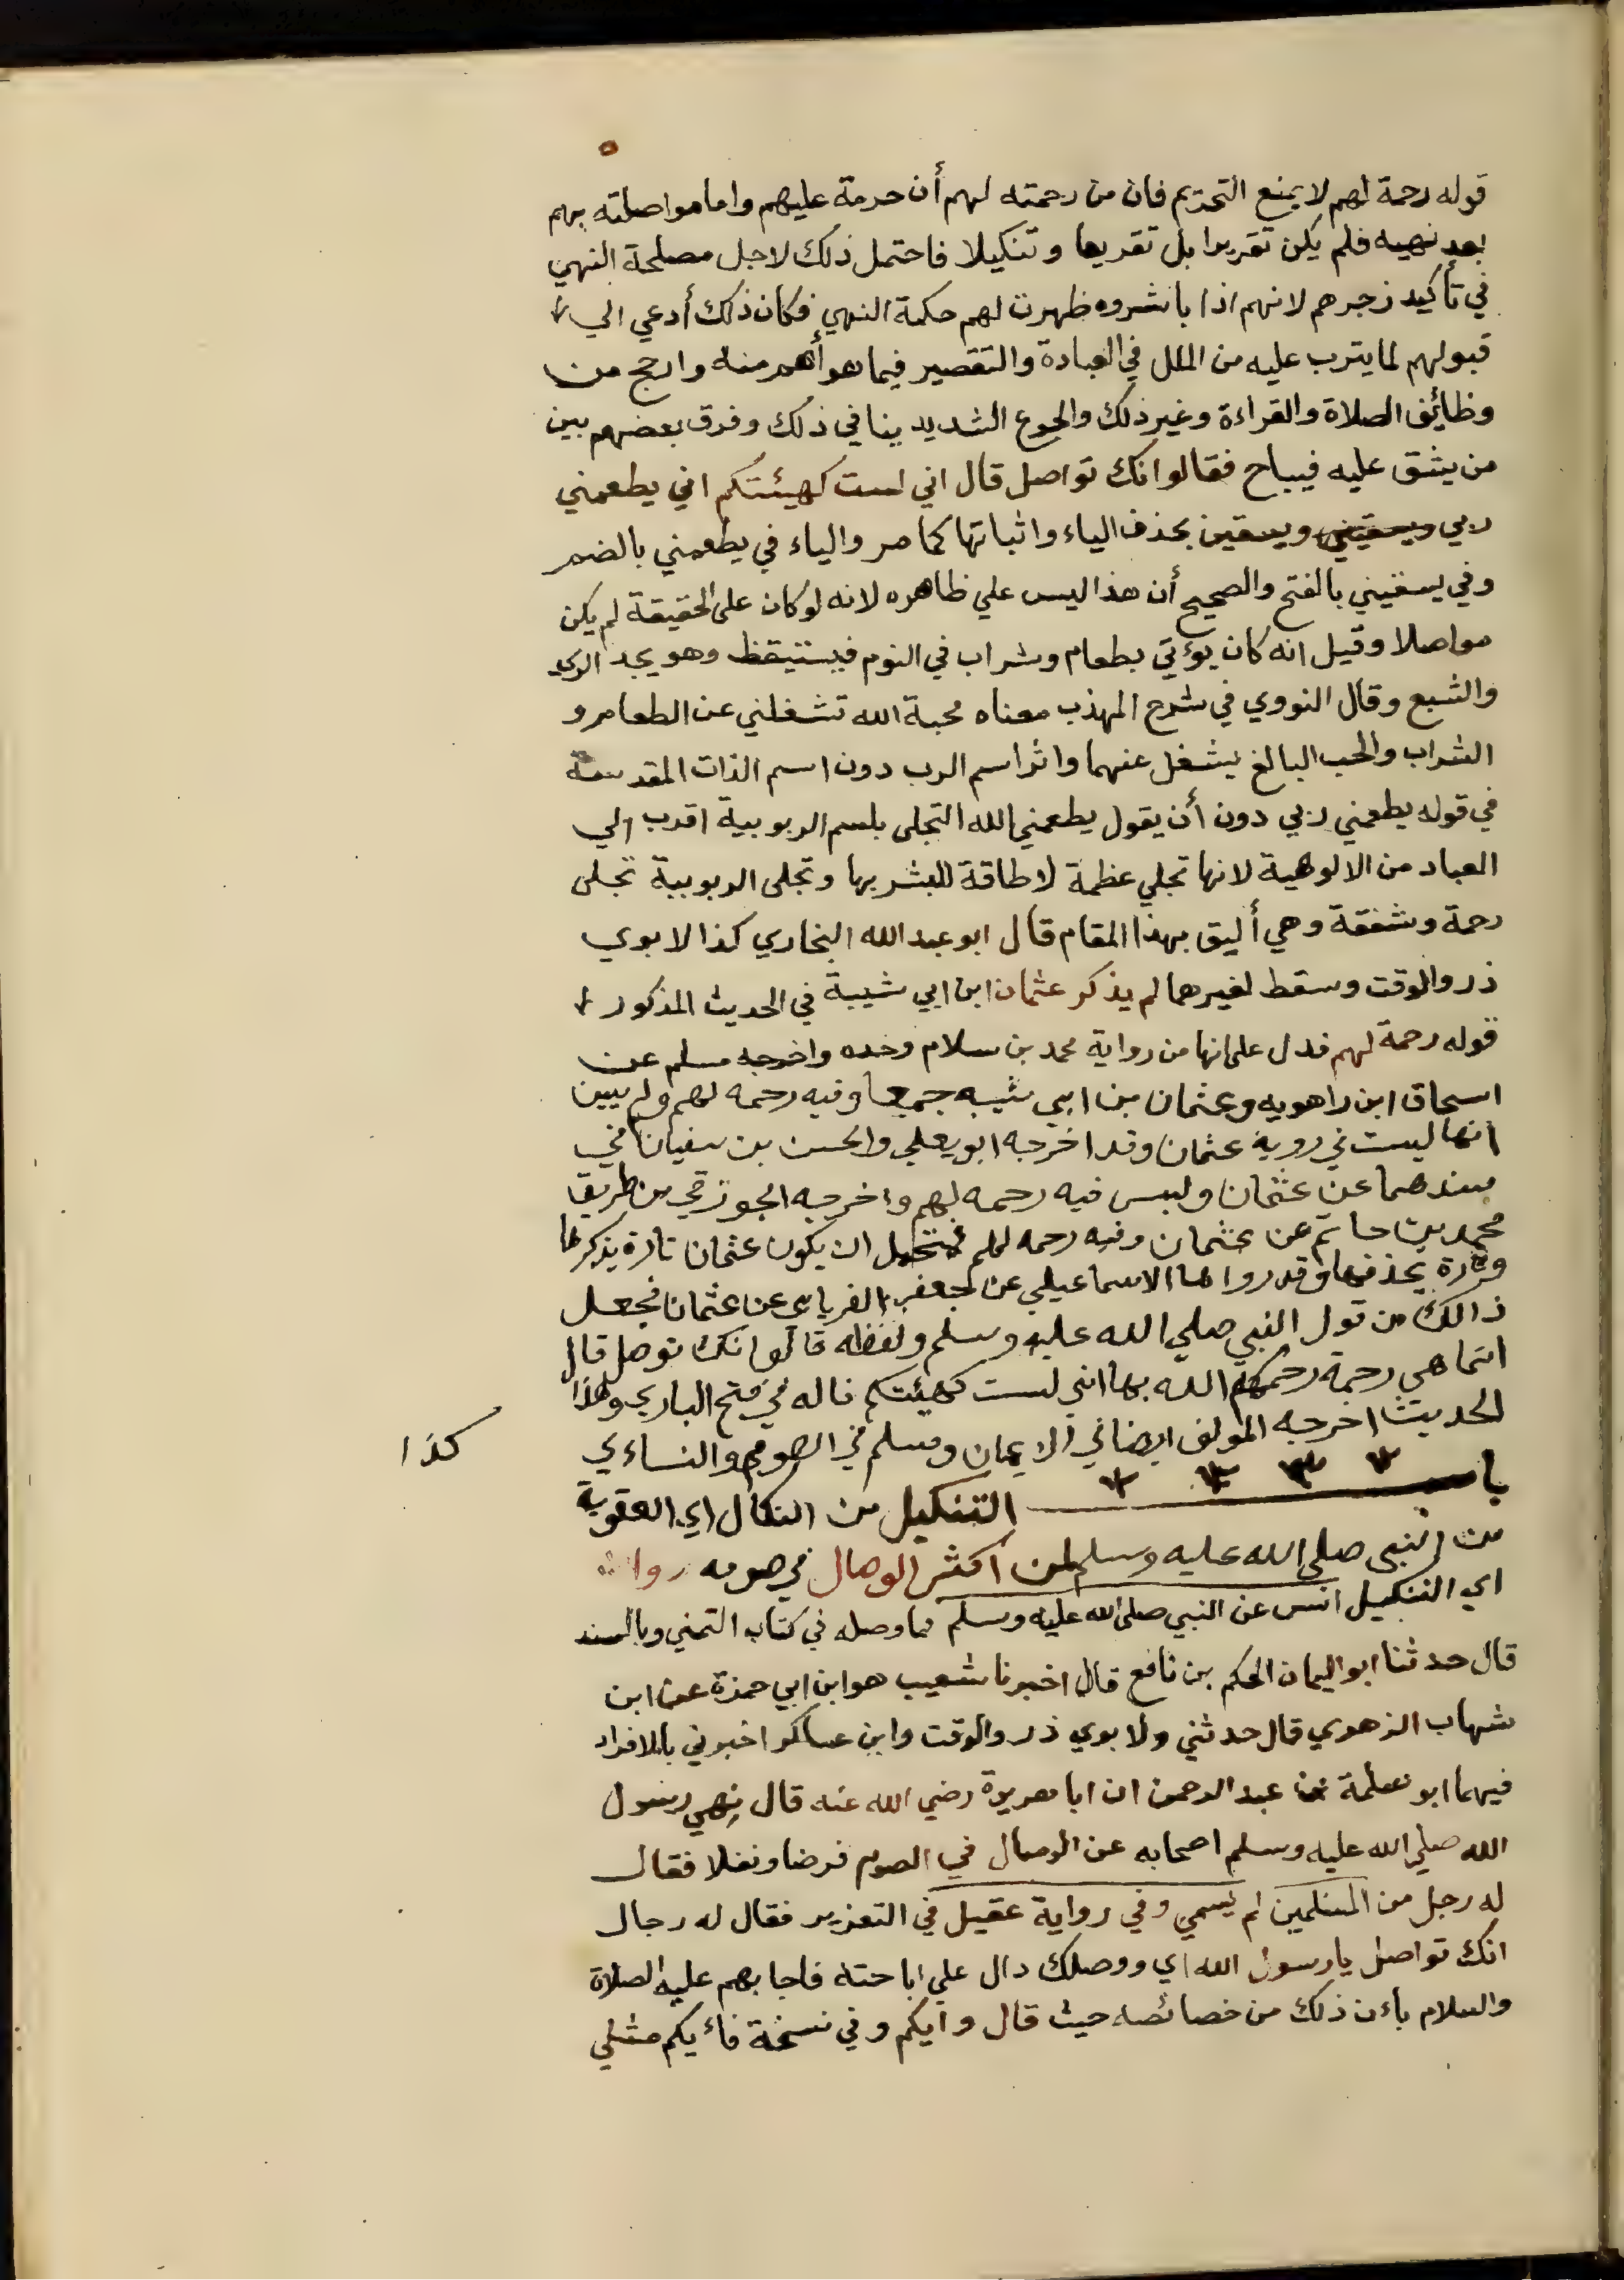 قوله رحمة لهم لا يمنع التحريم فان من رحمته لهم أن حرمة عليهم واما مواصلته بهم
بعد نهيه فلم يكن تقريرا بل تقريعا وتنكيلا فاحتمل ذلك لاجل مصلحة النهي
في تأكيد زجرهم لانهم اذا باشروه ظهرت لهم حكمة النهي فكان ذلك أدعي الي
قبولهم لما يترب عليه من الملل في العبادة والتقصير فيما هو أهم منه وارجح من
وظائف الصلاة والقراءة وغير ذلك والجوع الشديد ينافي ذلك وفرق بعضهم بين
من يشق عليه فيباح فقالوا انك تواصل قال اني لست كهيئتكم اني يطعمني
ربي ويسقيني ويسقين بحذف الياء واثباتها كما مر والياء في يطعمني بالضم
وفي يسقيني بالفتح والصحيح أن هذا ليس علي ظاهره لانه لو كان على الحقيقة لم يكن
مواصلا وقيل انه كان يؤتي بطعام وشراب في النوم فيستيقظ وهو يجد الري
والشبع وقال النووي في شرح المهذب معناه محبة الله تشغلني عن الطعام و
الشراب والحب البالغ يشغل عنهما واثر اسم الرب دون اسم الذات المقدسة
في قوله يطعمني ربي دون أن يقول يطعمني الله التجلى بلسم الربوبية اقرب الي
العباد من الالوهية لانها تجلي عظمة لا طاقة للبشر بها وتجلى الربوبية تجلى
رحمة وشفقة وهي أليق بهذا المقام قال ابو عبد الله البخاري كذا لابوي
ذر والوقت وسقط لغيرهما لم يذكر عثمان ابن ابي شيبة في الحديث المذكور
قوله رحمة لهم فدل على انها من رواية محمد بن سلام وحده واخرجه مسلم عن
اسحاق ابن راهويه وعثمان بن ابي شيبه جميعا وفيه رحمه لهم ولم يبين
انها ليست في روية عثمان وقد اخرجه ابو يعلي والحسن بن سفيان في
مسندهما عن عثمان وليس فيه رحمه لهم واخرجه الجوزقي من طريق
محمد بن حاتم عن عثمان وفيه رحمه لهم فيحتمل ان يكون عثمان تارة يذكرها
وتارة يحذفها وقد رواها الاسماعيلي عن جعفر الفريابي عن عثمان فجعل
ذالك من قول النبي صلي الله عليه وسلم ولفظه قالوا انك توصل قال
انما هي رحمة رحمكم الله بها اني لست كهيئتكم قاله في فتح الباري وهذا
الحديث اخرجه المولف ايضا في الايمان ومسلم في الصوم والنساءي
كذا
باب التنكيل من النكال اي العقوبة
من النبي صلي الله عليه وسلم لمن اكثر الوصال في صومه رواه
اي التنكيل انس عن النبي صلى الله عليه وسلم مما وصله في كتاب التمني وبالسند
قال حدثنا ابو اليمان الحكم بن نافع قال اخبرنا شعيب هو ابن ابي حمزة عن ابن
شهاب الزهري قال حدثني ولابوي ذر والوقت وابن عساكر اخبرني بالافراد
فيهما ابو سلمة بن عبد الرحمن ان ابا هريرة رضي الله عنه قال نهي رسول
الله صلي الله عليه وسلم اصحابه عن الوصال في الصوم فرضا ونفلا فقال
له رجل من المسلمين لم يسمي وفي رواية عقيل في التعزير فقال له رجال
انك تواصل يا رسول الله اي ووصلك دال علي اباحته فاجابهم عليه الصلاة
والسلام باءن ذلك من خصائصه حيث قال وايكم وفي نسخة فأيكم مثلي